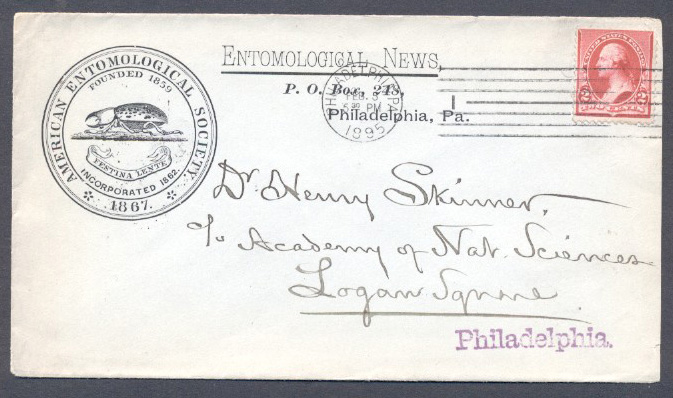 AMERICAN ENTOMOLOGICAL SOCIETY.
FOUNDED 1859
FESTINA LENTE
INCORPORATED 1862.
1867.
ENTOMOLOGICAL NEWS,
P. O. Box, 248,
Philadelphia, Pa.
PHILADELPHIA, PA.
FEB. 9
PM
1895
1
UNITED STATES POSTAGE
2 2
Dr. Henry Skinner,
c/o Academy of Nat. Sciences
Logan Square.
Philadelphia.